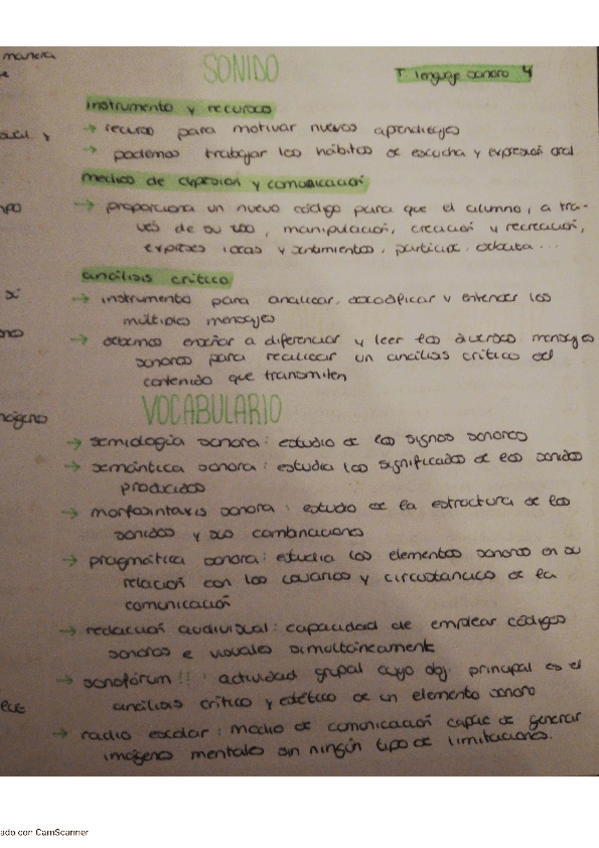 manera
SONIDO
T lenguaje sonoro 4
instrumento y recursos
→ recurso para motivar nuevos aprendizajes
→ podemos trabajar los hábitos de escucha y expresión oral
medios de expresión y comunicación
→ proporciona un nuevo código para que el alumno, a tra-
vés de su uso, manipulación, creación y recreación,
exprese ideas y sentimientos, participe, debata...
análisis crítico
→ instrumento para analizar, decodificar y entender los
múltiples mensajes
→ debemos enseñar a diferenciar y leer los diversos mensajes
sonoros para realizar un análisis crítico del
contenido que transmiten
VOCABULARIO
→ semiología sonora: estudio de los signos sonoros
→ semántica sonora: estudia los significados de los sonidos
producidos
→ morfosintaxis sonora: estudio de la estructura de los
sonidos y sus combinaciones
→ pragmática sonora: estudia los elementos sonoros en su
relación con los usuarios y circustancias de la
comunicación
→ redacción audivisual: capacidad de emplear códigos
sonoros e visuales simultáneamente
→ sonofórum!!: actividad grupal cuyo obj. principal es el
análisis crítico y estético de un elemento sonoro
→ radio escolar: medio de comunicación capaz de generar
imágenes mentales sin ningún tipo de limitaciones.
ado con CamScanner